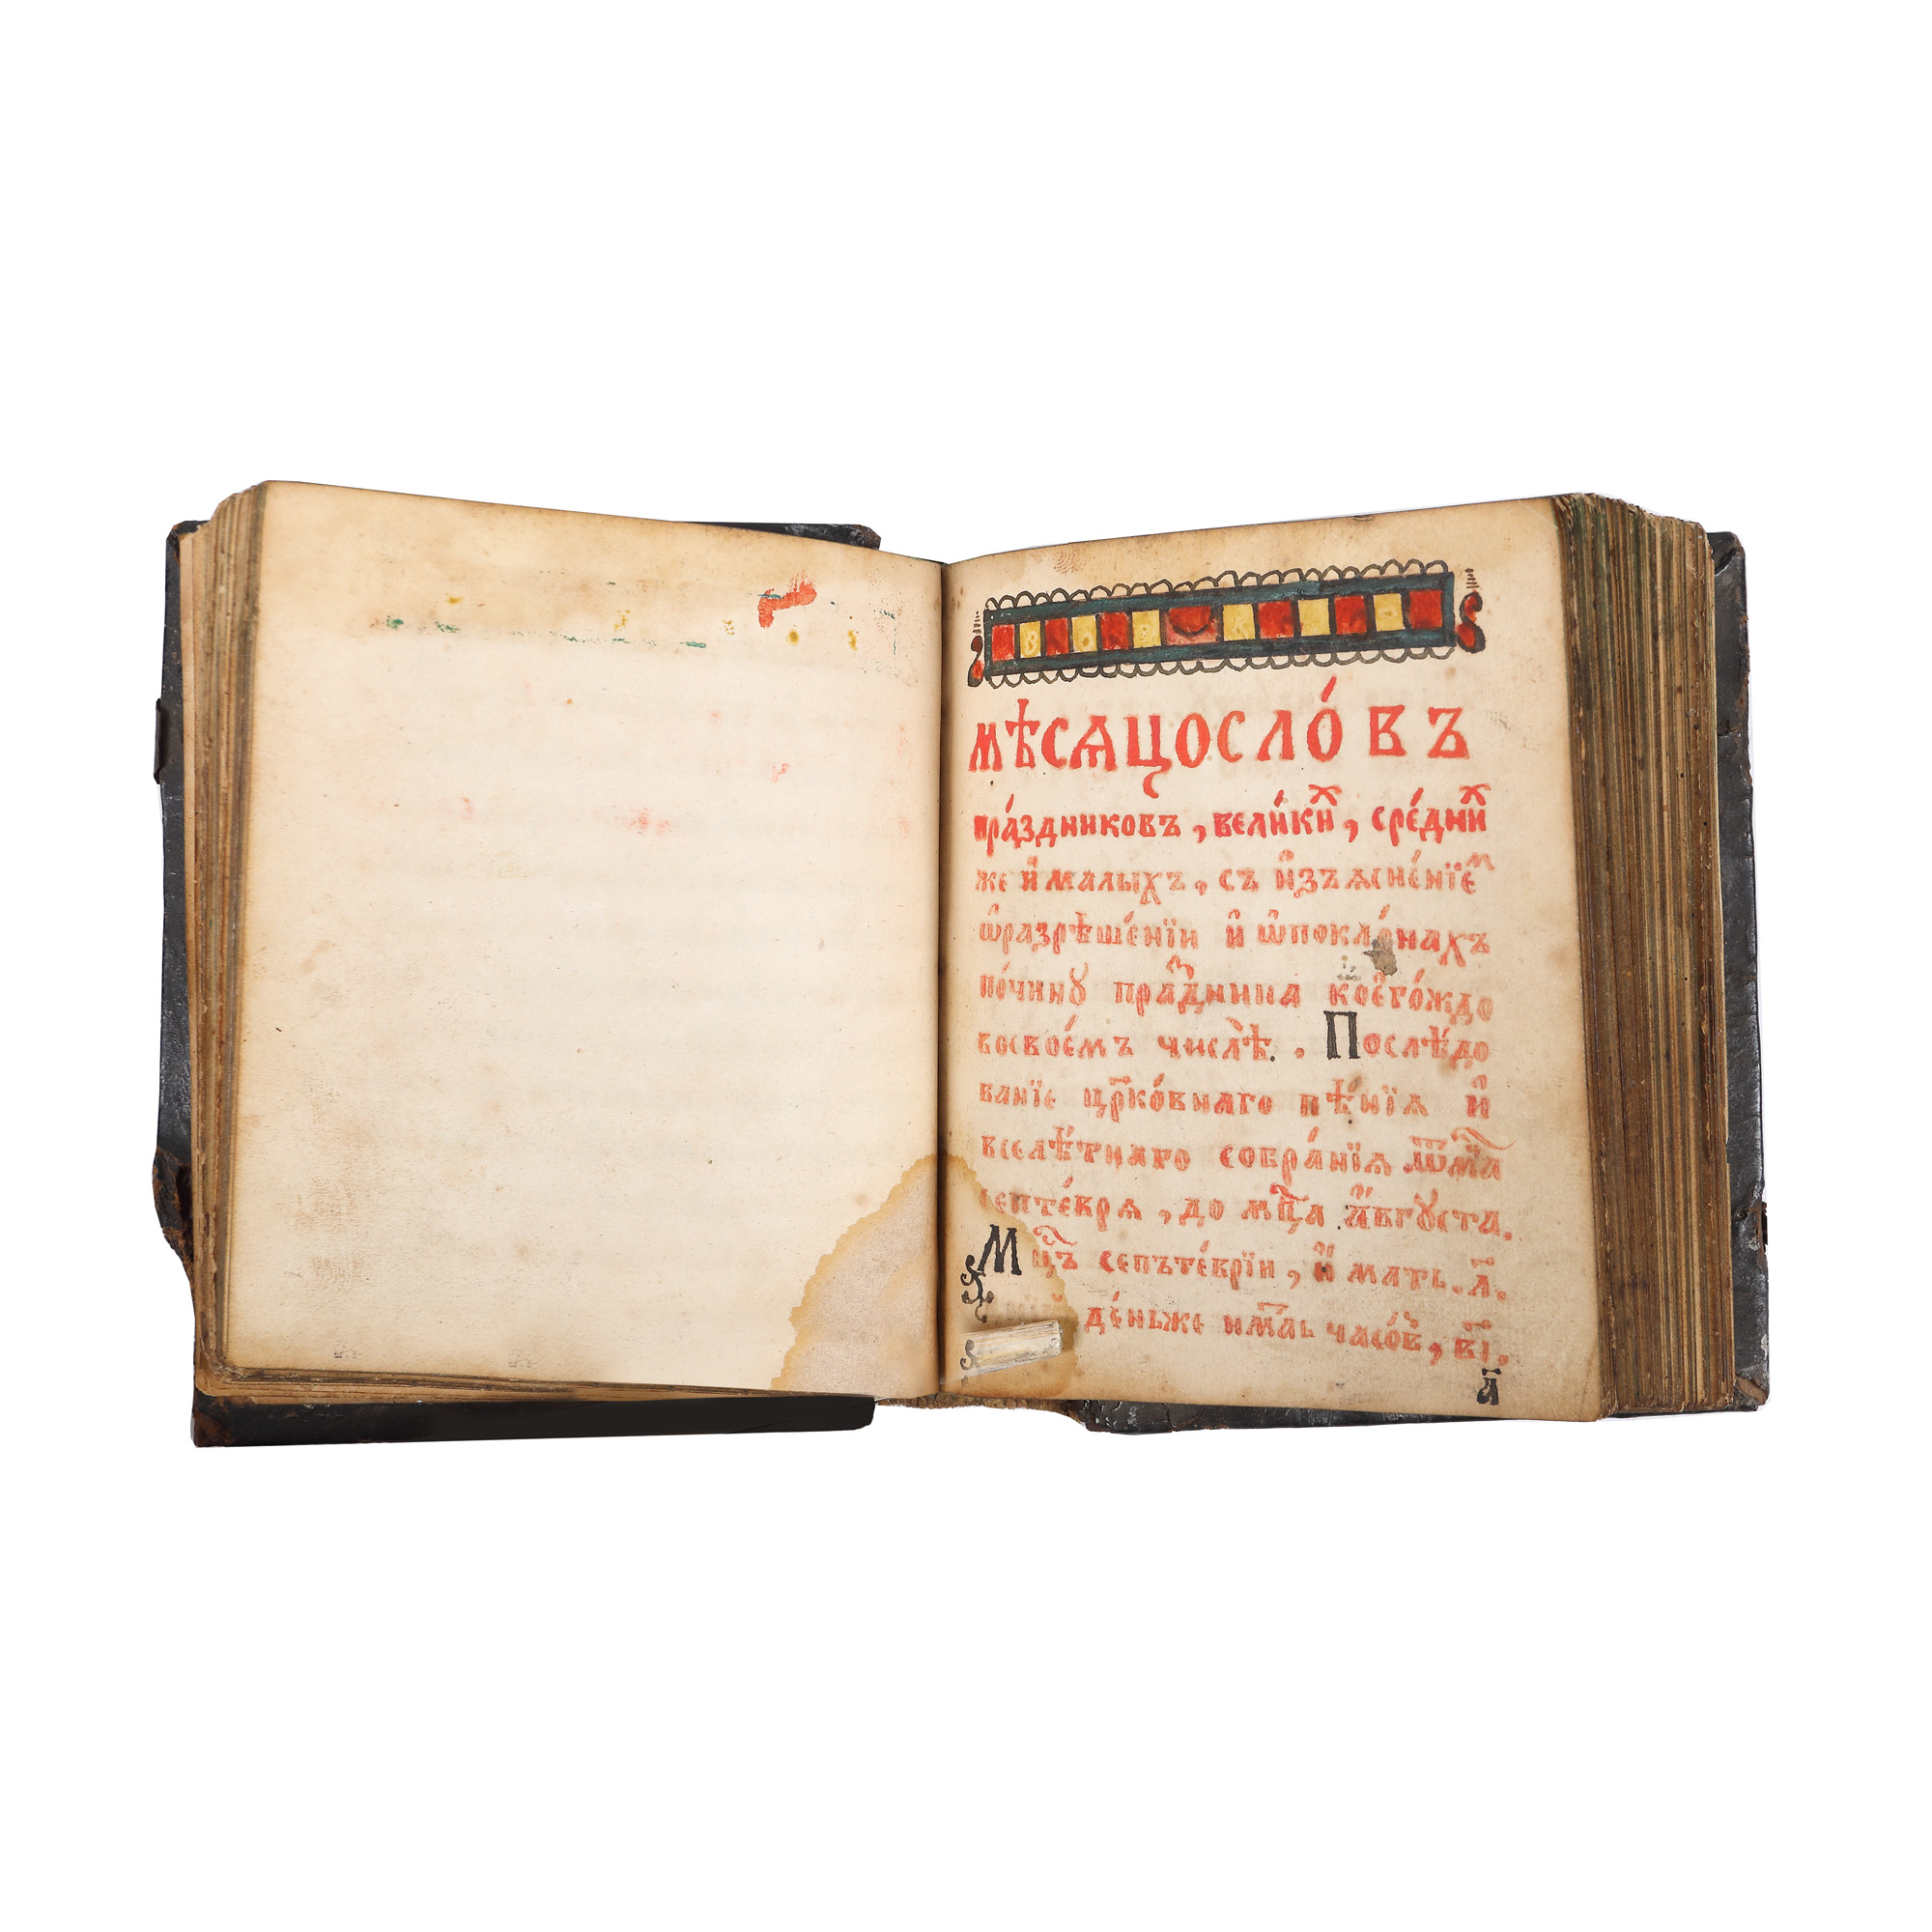 мѣсѧцосло́въ
пра́здниковъ, вели́ки̾ⷯ, сре́дни̾ⷯ
же и҆ малыхъ, съ и҆зъѧсне́нїеⷨ
ѡ҆разрѣше́нїи и҆ ѡ҆покло́нахъ
по́чинꙋ праⷥ҇дника коего́ждо
восвое́мъ числѣ̀. Послѣ́до
ванїе црⷦ҇ко́внаго пѣ́нїѧ и҆
вселѣ́тнаго собра́нїѧ ѿмцⷭ҇а
септе́врѧ, до мцⷭ҇а а҆́вгꙋста.
Мцⷭ҇ъ септе́врїи, и҆́мать .л҃.
де́ньже и҆мⷮаь часо́въ, в҃і.
а҃